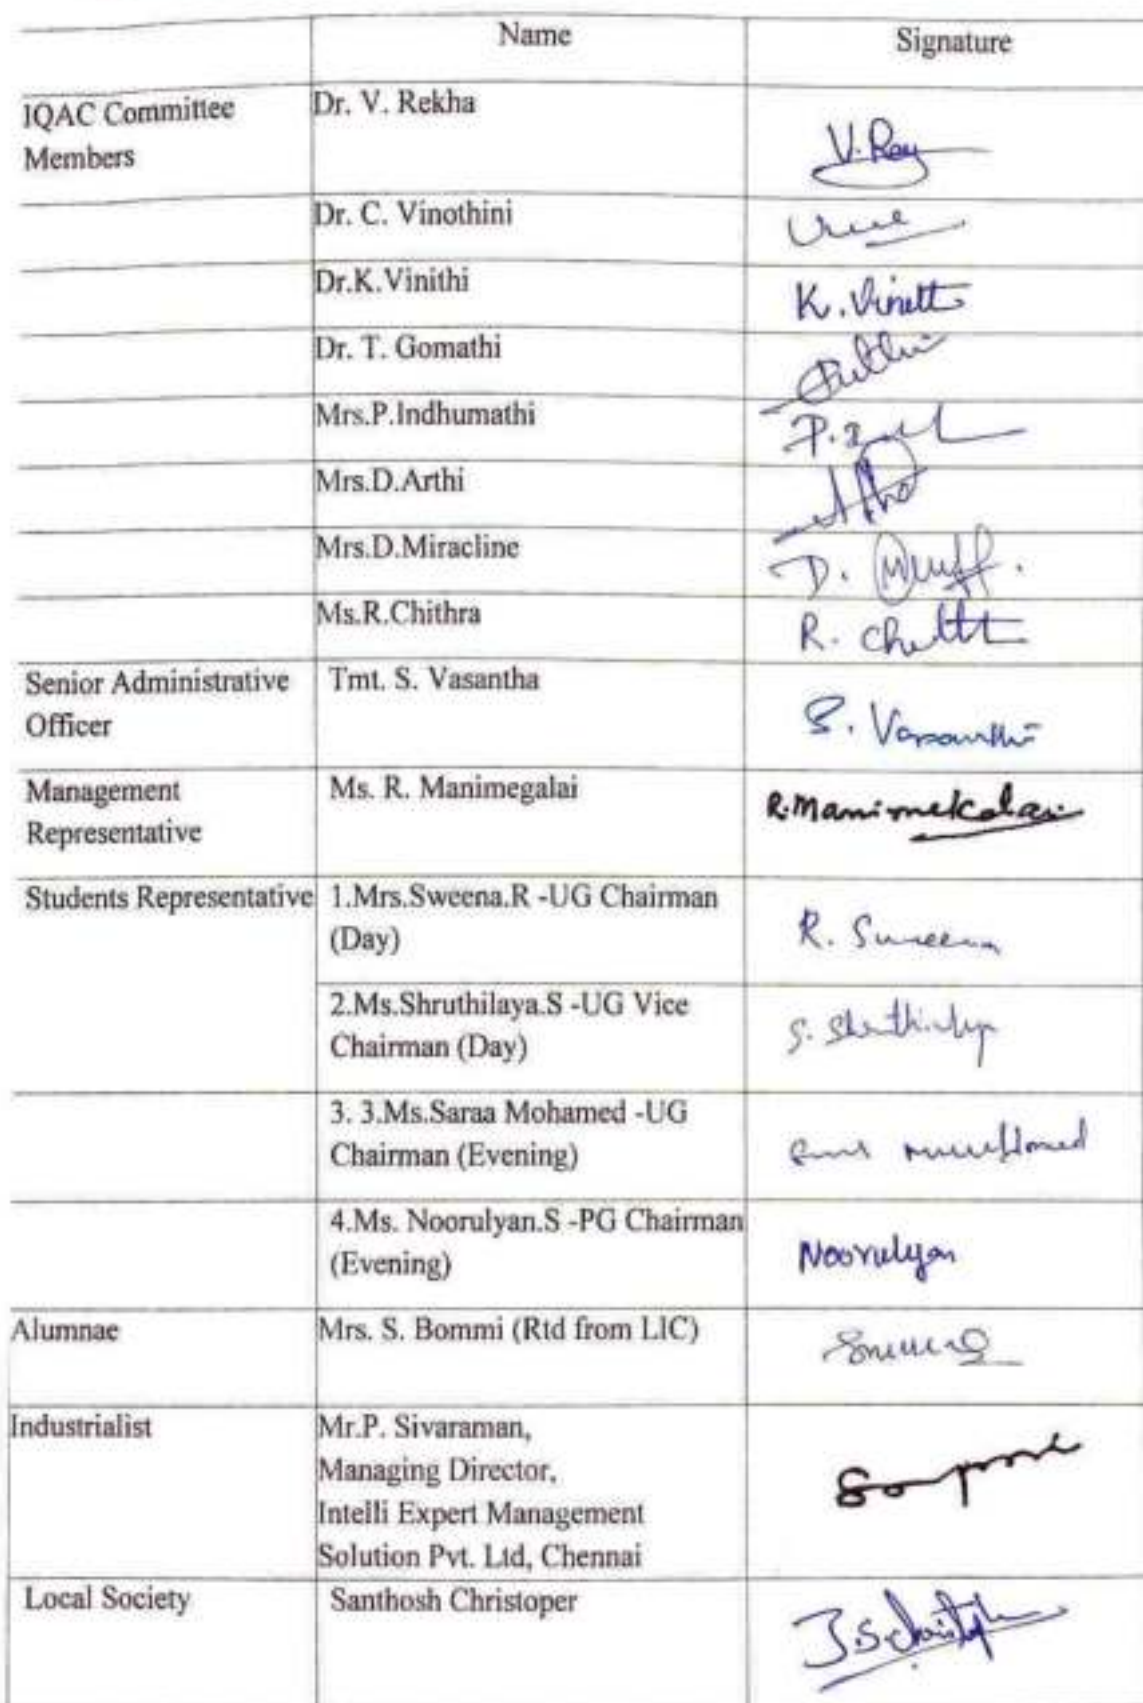 Name Signature
IQAC Committee Dr. V. Rekha
Members
Dr. C. Vinothini
Dr.K.Vinithi
K. Vinitt
Dr. T. Gomathi
Mrs.P.Indhumathi
Mrs.D.Arthi
Mrs.D.Miracline
Ms.R.Chithra
Senior Administrative Tmt. S. Vasantha
Officer
S. Vasanthi
Management Ms. R. Manimegalai
Representative
R.Manimekalai
Students Representative 1.Mrs.Sweena.R -UG Chairman
(Day)
R. Sweena
2.Ms.Shruthilaya.S -UG Vice
Chairman (Day)
3. 3.Ms.Saraa Mohamed -UG
Chairman (Evening)
4.Ms. Noorulyan.S -PG Chairman
(Evening)
Noorulyan
Alumnae Mrs. S. Bommi (Rtd from LIC)
Industrialist Mr.P. Sivaraman,
Managing Director,
Intelli Expert Management
Solution Pvt. Ltd, Chennai
Local Society Santhosh Christoper